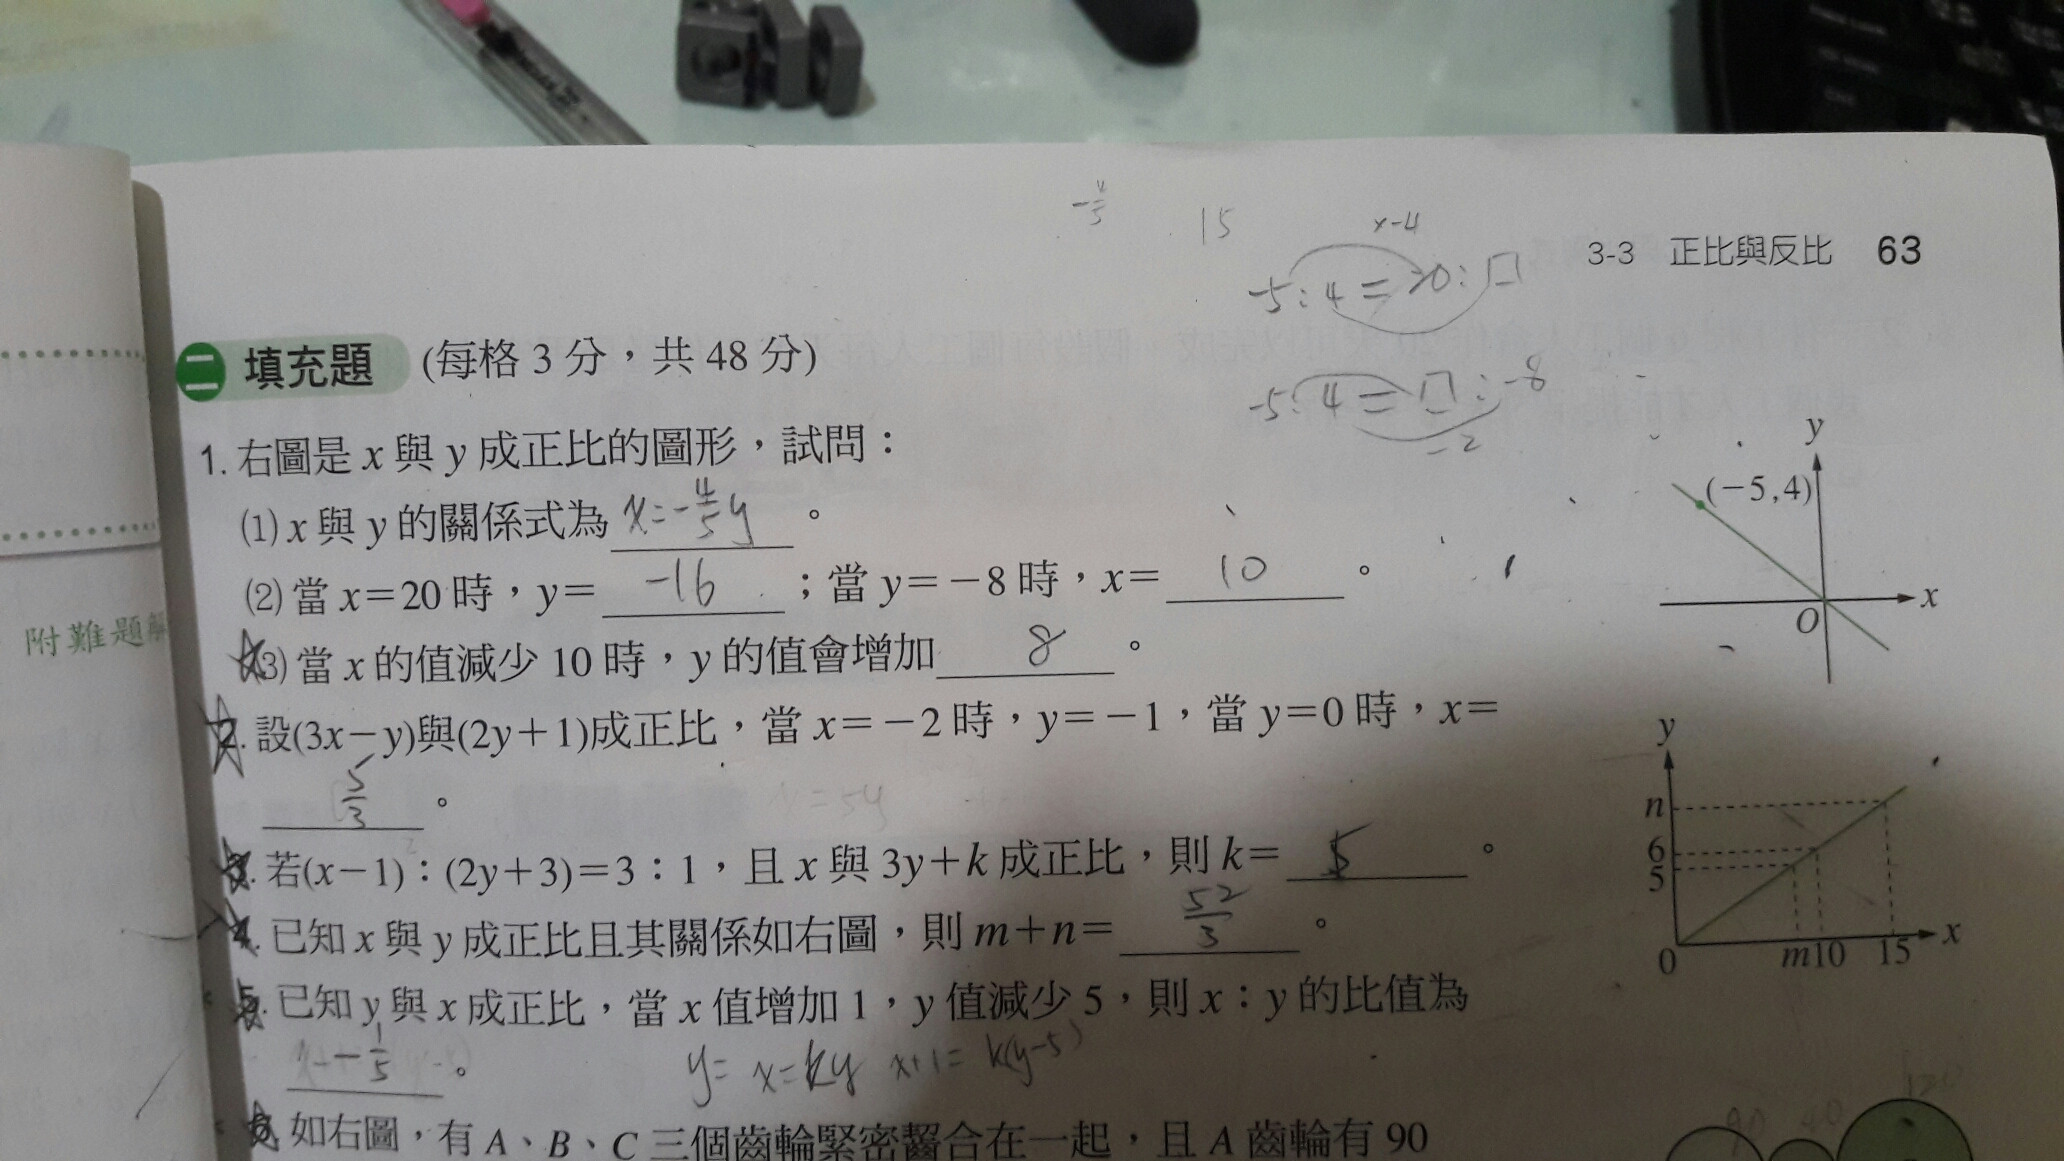 -4/5
15
×-4
3-3 正比與反比 63
-5:4=20:□
二 填充題 (每格3分，共48分)
-5:4=□:-8
-2
1. 右圖是x與y成正比的圖形，試問：
(1) x與y的關係式為 x=-4/5y 。
(2) 當x=20時，y= -16 ；當y=-8時，x= 10 。
(3) 當x的值減少10時，y的值會增加 8 。
y
(-5,4)
x
O
附難題解
2. 設(3x-y)與(2y+1)成正比，當x=-2時，y=-1，當y=0時，x=
5/3 。
=5y
3. 若(x-1)：(2y+3)=3：1，且x與3y+k成正比，則k= 5 。
4. 已知x與y成正比且其關係如右圖，則m+n= 52/3 。
y
n
6
5
0 m 10 15 x
5. 已知y與x成正比，當x值增加1，y值減少5，則x：y的比值為
-1/5 。
y= x=ky x+1=k(y-5)
6. 如右圖，有A、B、C三個齒輪緊密齧合在一起，且A齒輪有90
90 40 120